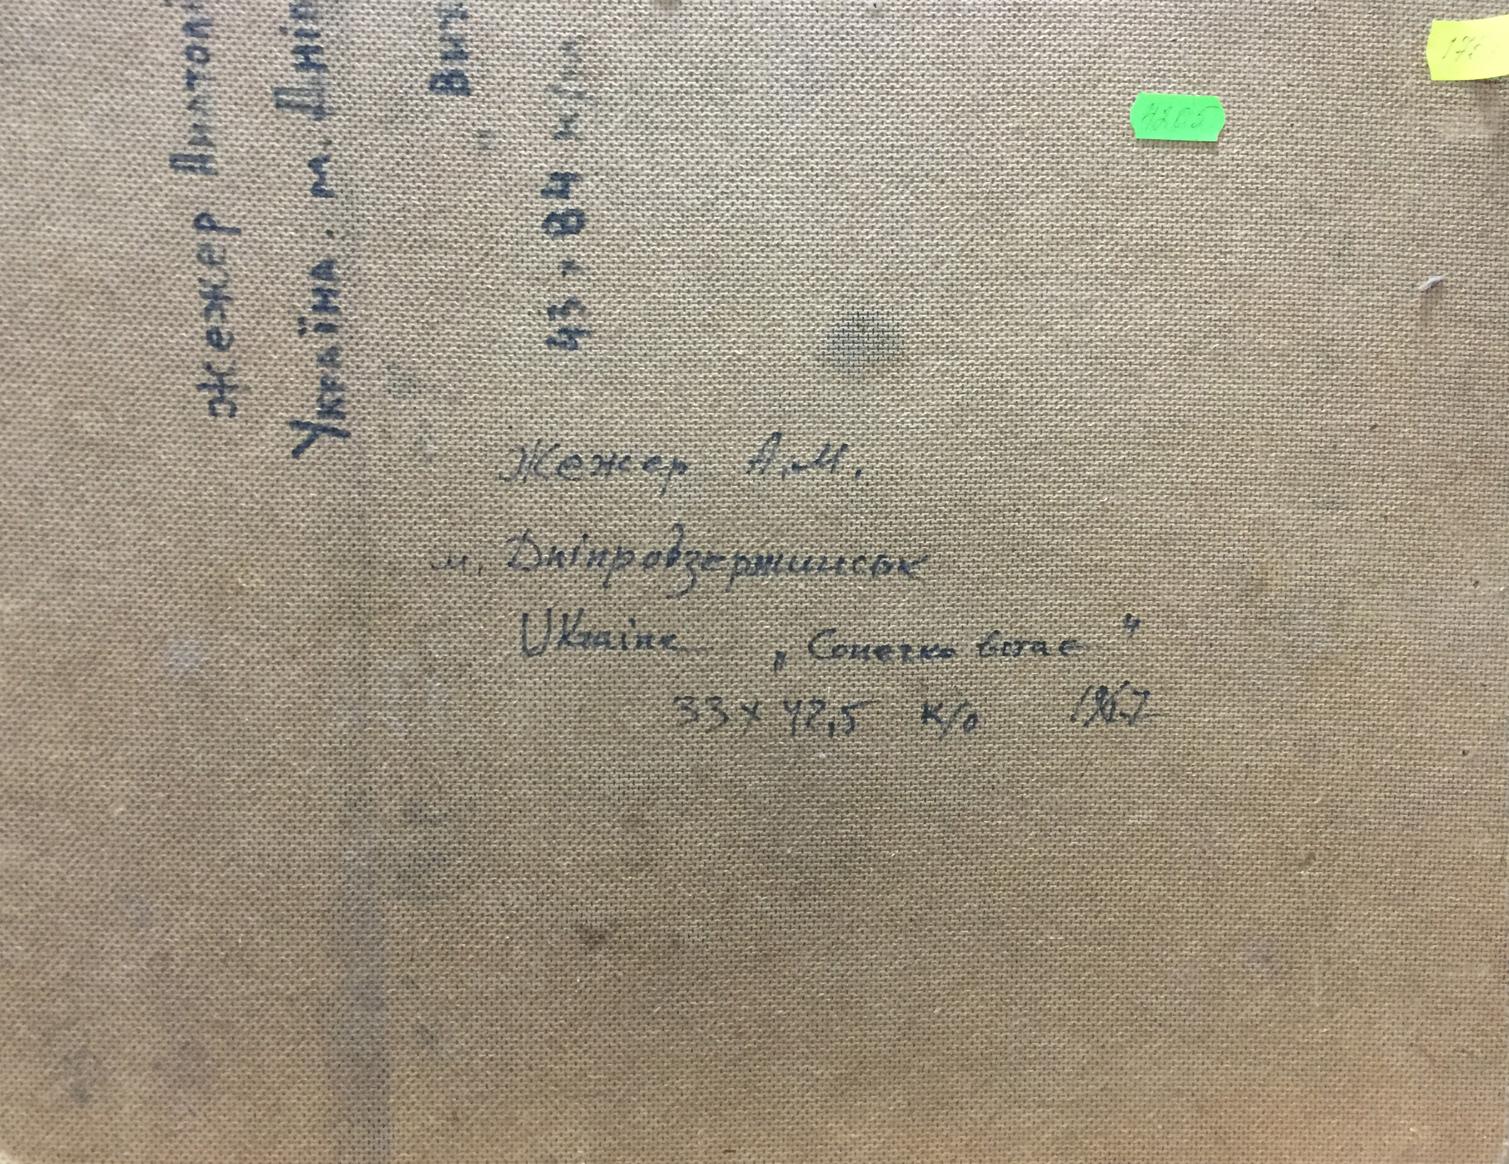 Жежер Анатолі
Україна. м. Дніп
Вит
43 × 84 кра
4205
Жежер А.М.
м. Дніпродзержинськ
UKraine „Сонечко встає"
33 x 42,5 к/о 1967